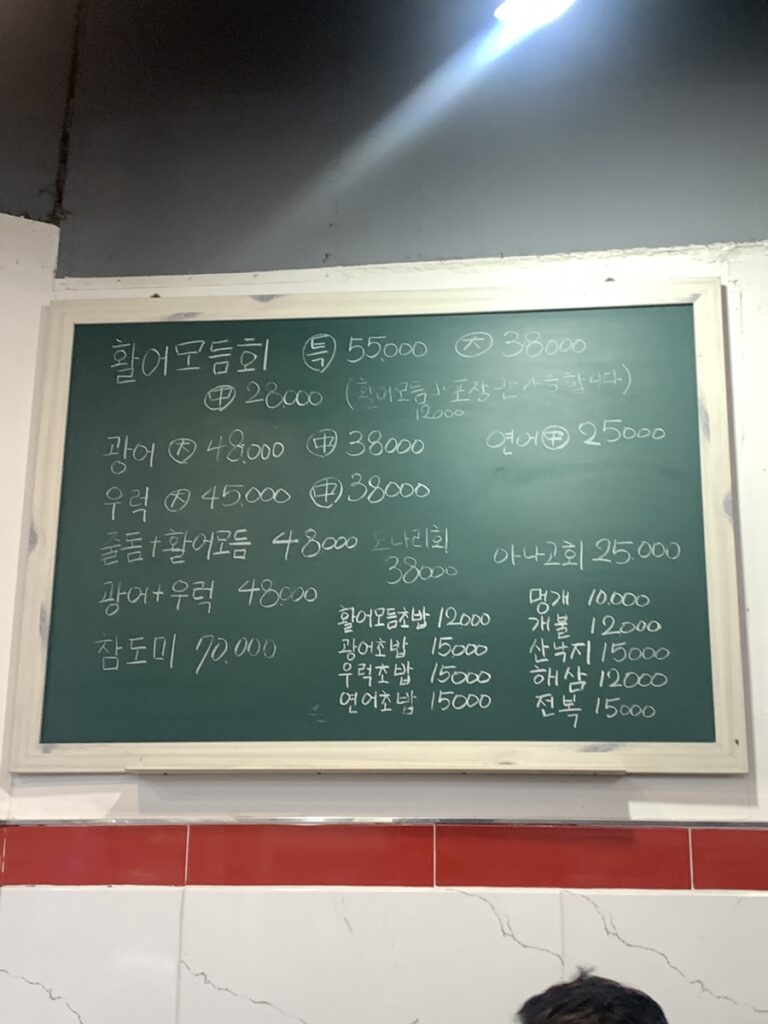 활어모듬회 ㊕ 55,000 大 38000
中 28,000 (활어모듬小 포장만 가능합니다)
12000
광어 大 48,000 中 38000
연어 中 25000
우럭 大 45,000 中 38000
줄돔+활어모듬 48000
도다리회
38000
아나고회 25,000
광어+우럭 48,000
참도미 70,000
활어모듬초밥 12000
광어초밥 15000
우럭초밥 15000
연어초밥 15000
멍개 10,000
개불 12000
산낙지 15000
해삼 12000
전복 15000